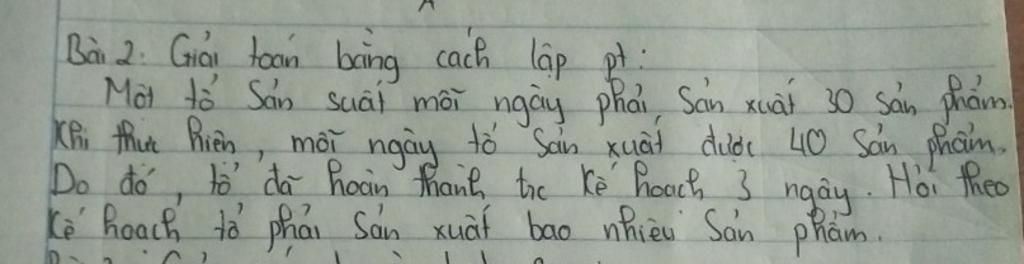 Bài 2: Giải toán bằng cách lập pt:
Một tổ Sản suất mỗi ngày phải Sản xuất 30 sản phẩm.
Khi thực hiện, mỗi ngày tổ Sản xuất được 40 Sản phẩm.
Do đó, tổ đã hoàn thành trc kế hoạch 3 ngày. Hỏi theo
kế hoạch tổ phải Sản xuất bao nhiêu Sản phẩm.